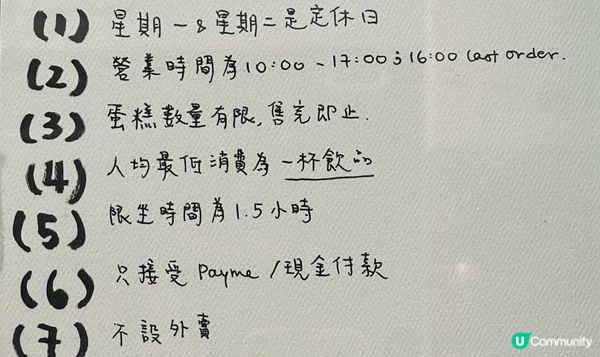 (1) 星期一 & 星期二是定休日
(2) 營業時間為10:00 - 17:00；16:00 last order.
(3) 蛋糕數量有限，售完即止.
(4) 人均最低消費為一杯飲品
(5) 限坐時間為1.5小時
(6) 只接受 Payme /現金付款
(7) 不設外賣
U Community